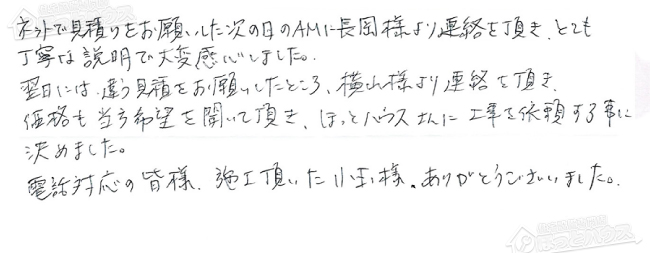 ネットで見積りをお願いした次の日のAMに長岡様より連絡を頂き、とても
丁寧な説明で大変感心しました。
翌日には、違う見積をお願いしたところ、横山様より連絡を頂き、
価格も当方希望を聞いて頂き、ほっとハウスさんに工事を依頼する事に
決めました。
電話対応の皆様、施工頂いた小玉様、ありがとうございました。
ほっとハウス